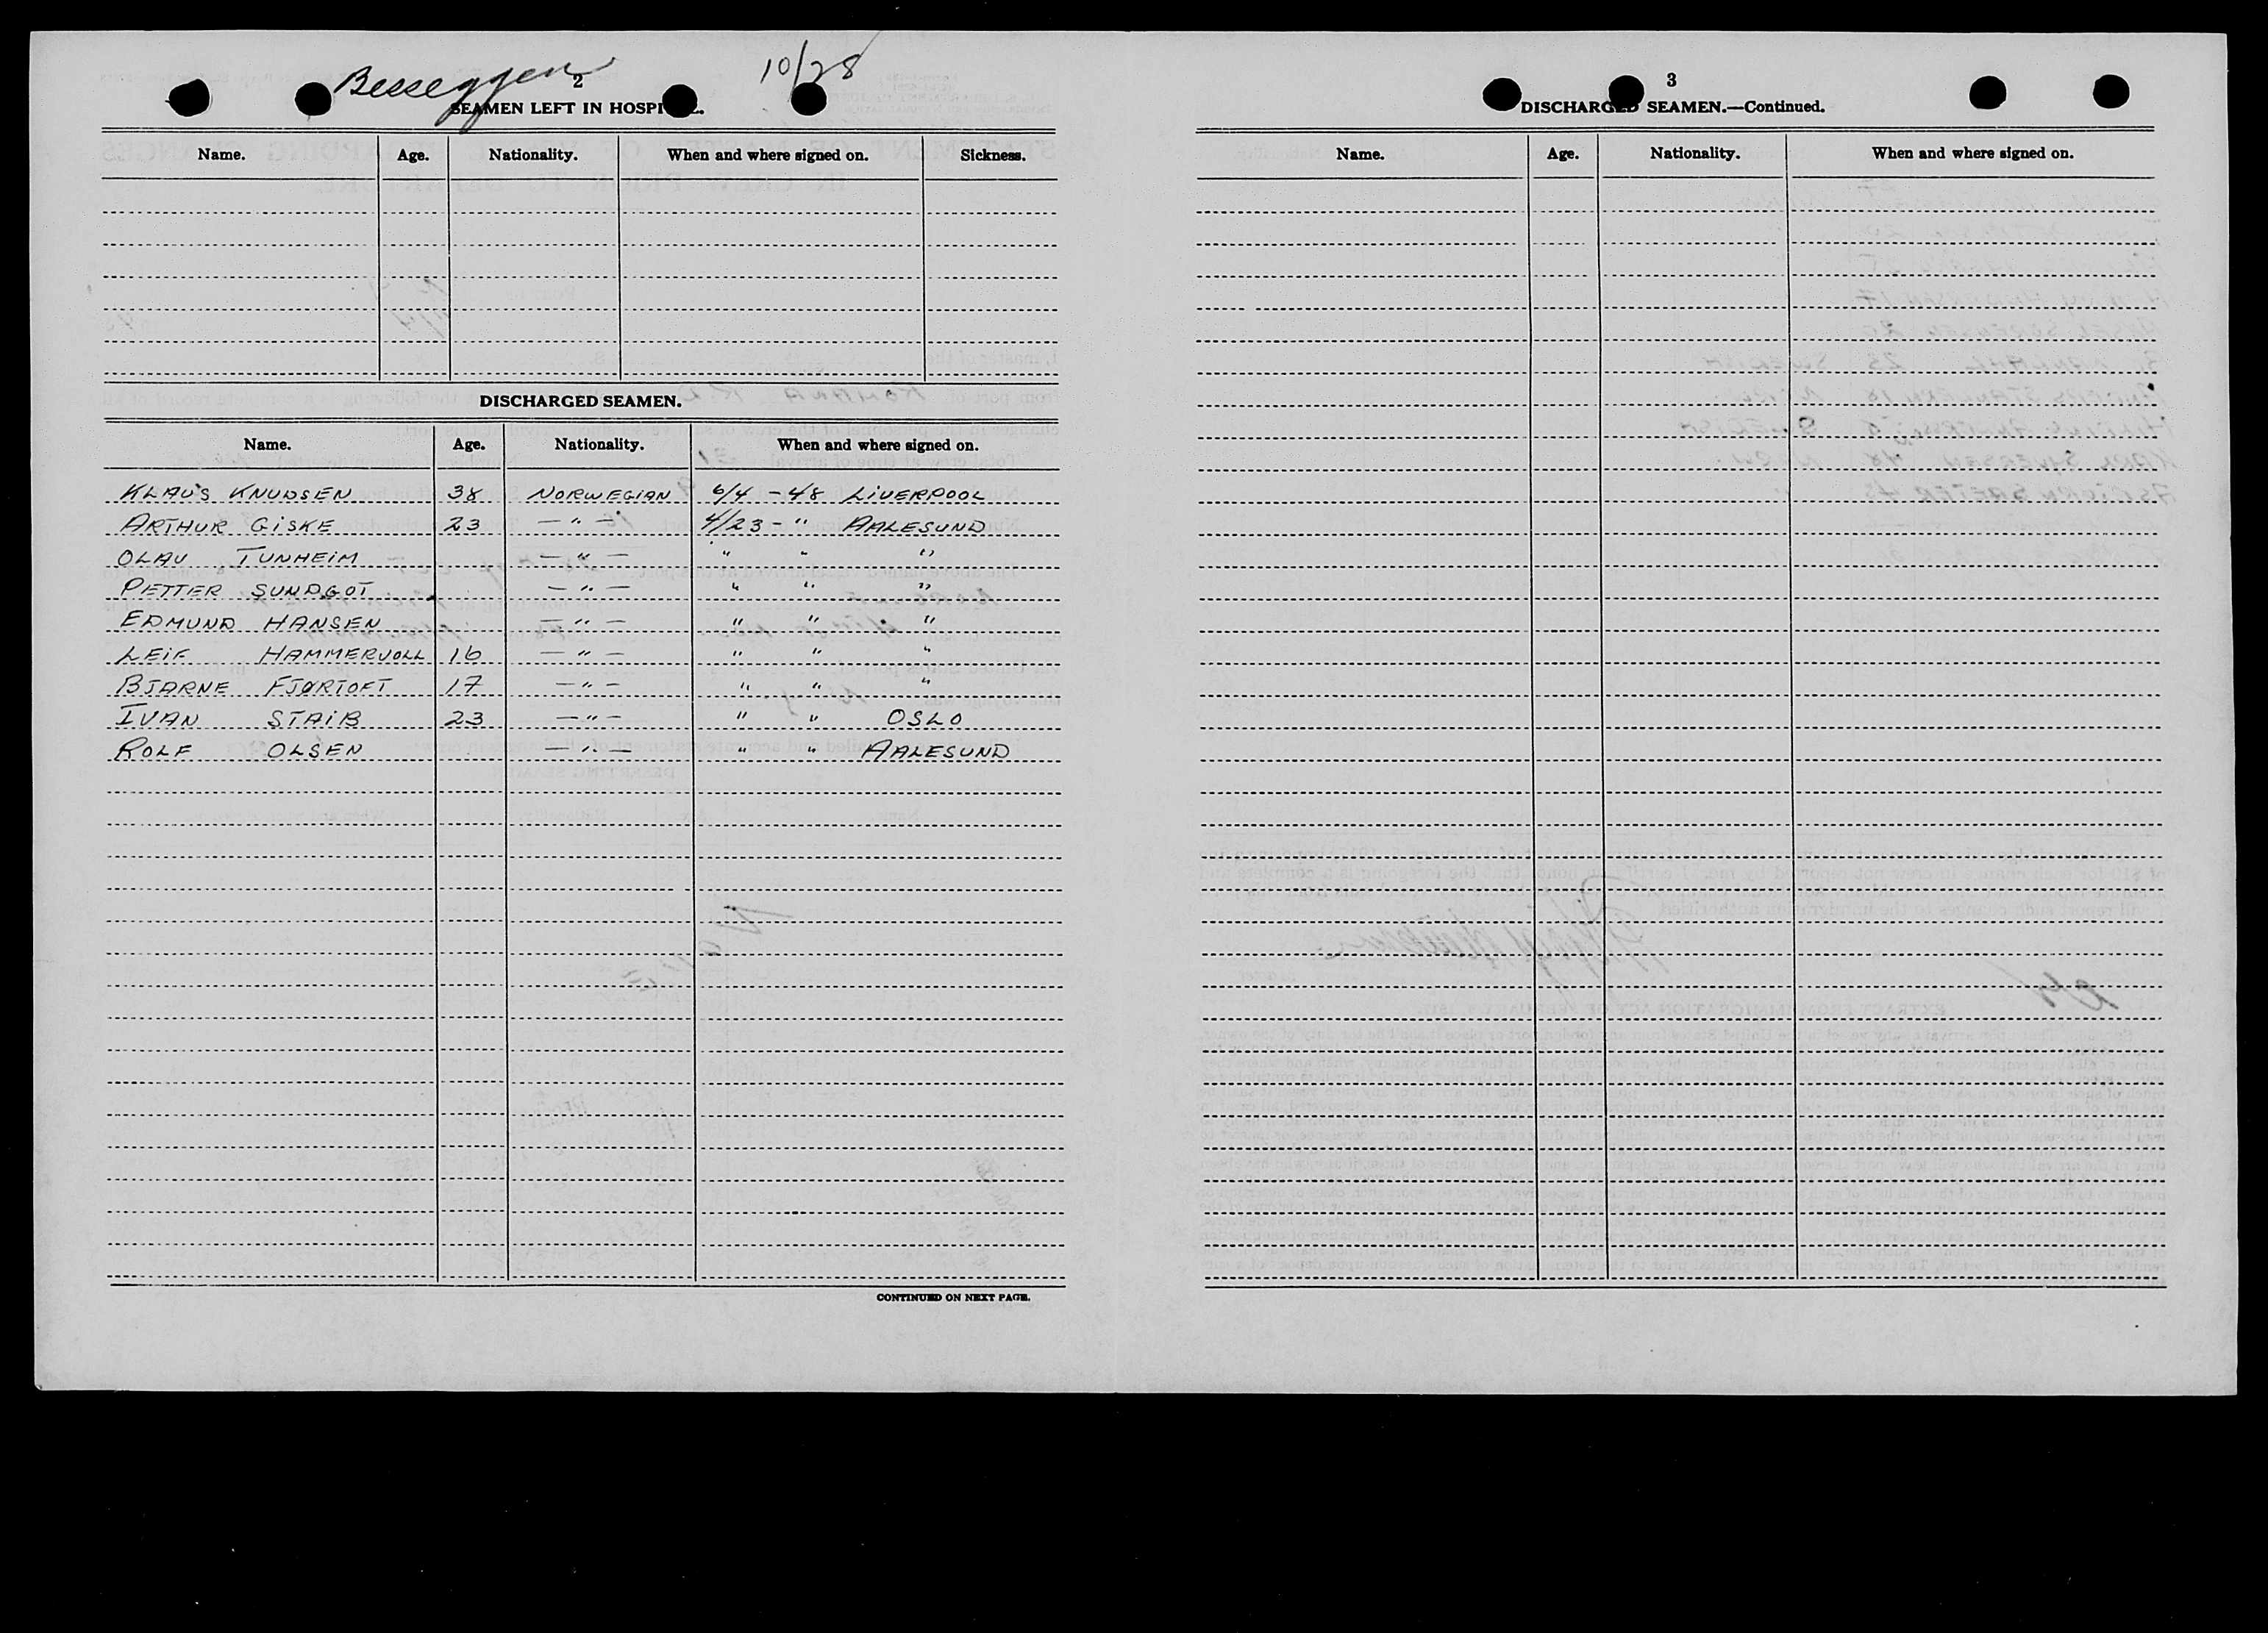 Besseggen 10/28
2
SEAMEN LEFT IN HOSPI
Name. Age. Nationality. When and where signed on. Sickness.
DISCHARGED SEAMEN.
Name. Age. Nationality. When and where signed on.
KLAUS KNUDSEN 38 NORWEGIAN 6/4 - 48 LIVERPOOL
ARTHUR GISKE 23 — " — 4/23 - " AALESUND
OLAV TUNHEIM — " — " " "
PETTER SUNDGOT — " — " " "
EDMUND HANSEN — " — " " "
LEIF HAMMERVOLL 16 — " — " " "
BJARNE FJØRTOFT 17 — " — " " "
IVAN STAIB 23 — " — " " OSLO
ROLF OLSEN — " — " " AALESUND
CONTINUED ON NEXT PAGE.
3
DISCHARGED SEAMEN.—Continued.
Name. Age. Nationality. When and where signed on.